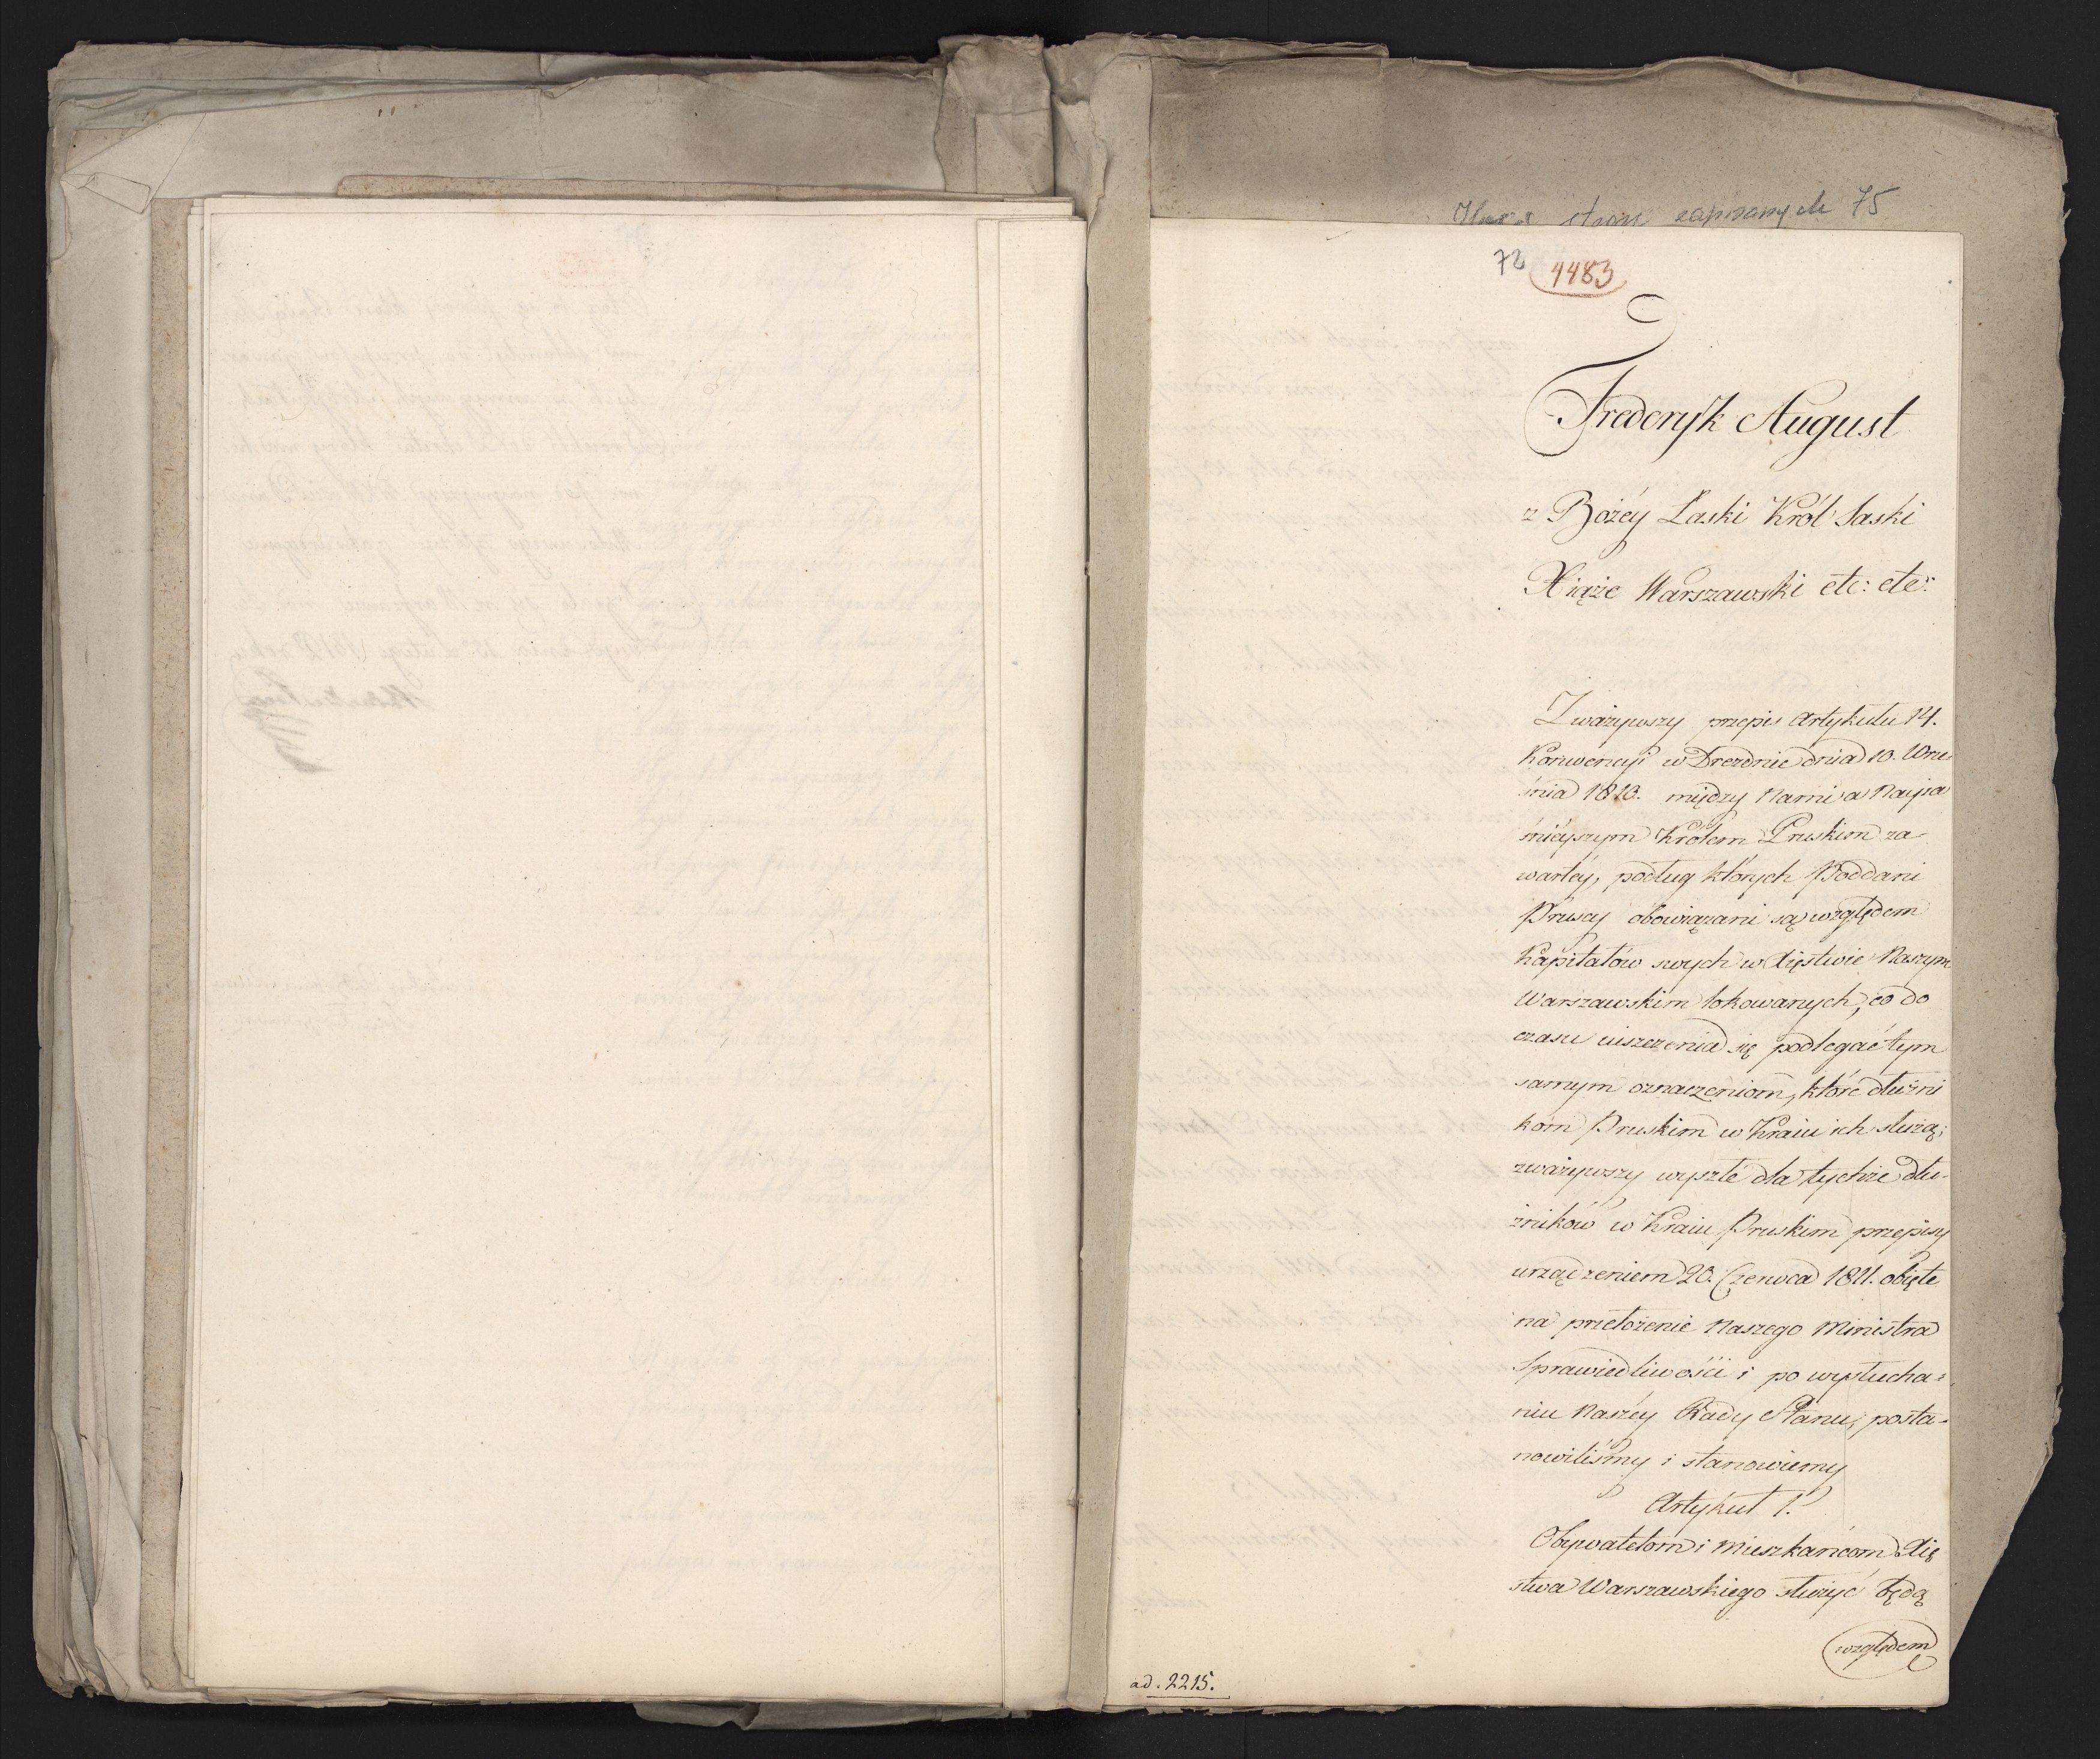 stron zapisanych 75
72 1183
Frederyk August
z Bożéy Łaski Król Saski
Xiąże Warszawski etc: etc:
Zważywszy przepis Artykułu 14.
Konwencyi w Dreznie dnia 10. Wrze-
śnia 1810. między Nami a Nayia
śnieyszym Królem Pruskim za-
wartéy, podług których Poddani
Pruscy obowiązani są względem
Kapitałów swych w Xięstwie Naszym
Warszawskim lokowanych, co do
czasu uiszczenia się podlegać tym
samym oznaczeniom, które dłużni
kom Pruskim w Kraiu ich służą;
zważywszy wyszłe dla tychże dłu-
żników w Kraiu Pruskim przepisy
urządzeniem 20. Czerwca 1811. obięte
na przełożenie Naszego Ministra
Sprawiedliwości i po wysłucha-
niu Naszéy Rady Stanu, posta-
nowiliśmy i stanowiemy
Artykuł 1.
Obywatelom i Mieszkańcom Xię
stwa Warszawskiego służyć będą
względem
ad. 2215.